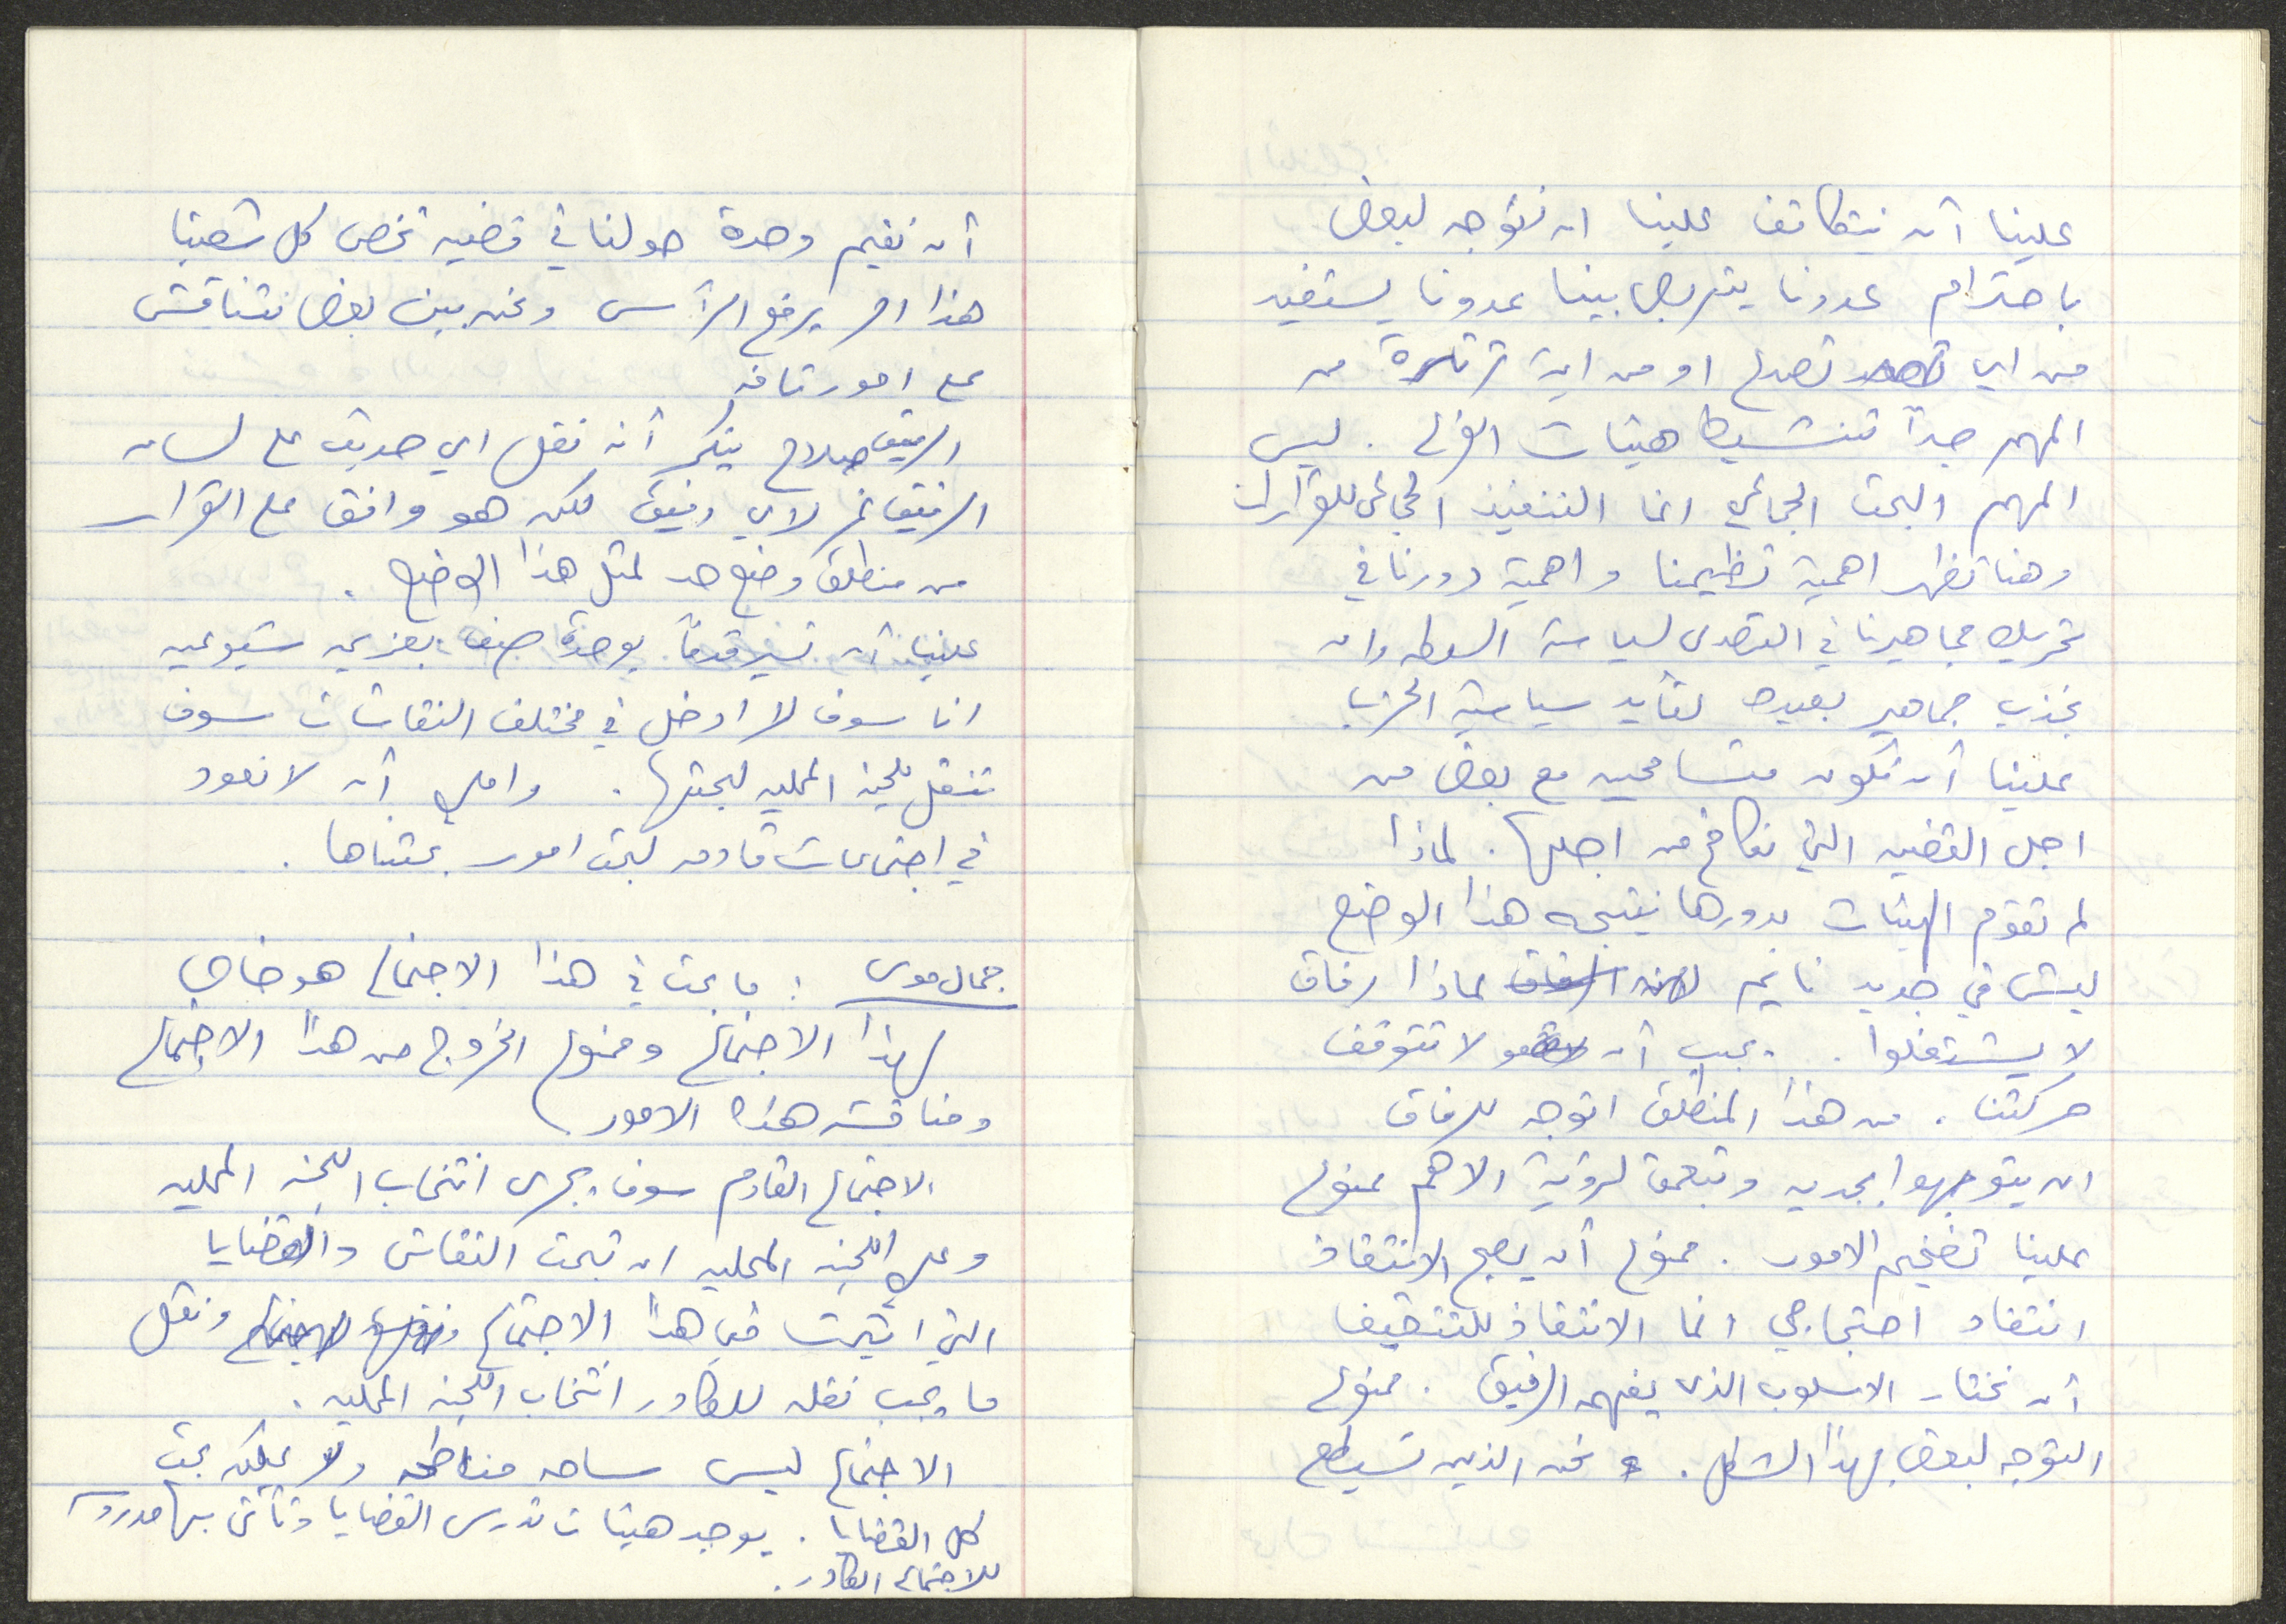 علينا أن نتكاتف علينا ان نتوجه لبعض
باحترام عدونا يتربص بينا عدونا يستفيد
من اي تصدع او من اية ثرثرة من
المهم جداً تنشيط هيئات الفرع . ليس
المهم البحث الجماعي انما التنفيذ الجماعي للقرارات
وهنا تظهر اهمية تنظيمنا واهمية دورنا في
تحريك جماهيرنا في التصدى لسياسة السلطه وان
نجذب جماهير بعيده لتأيد سياسة الحزب
علينا أن نكون متسامحين مع بعض من
اجل القضيه التي نكافح من اجلها . لماذا
لم تقوم الهيئات بدورها نتيجه هذا الوضع
ليش في جديد نايم لماذا رفاق
لا يشتغلوا . يجب أن لا تتوقف
حركتنا . من هذا المنطلق اتوجه للرفاق
ان يتوجهوا بجديه وتعمق لرؤية الاهم ممنوع
علينا تضخيم الامور . ممنوع أن يصبح الانتقاد
انتقاد احتجاجي انما الانتقاد للتثقيف
أن نختار الاسلوب الذى يفهمه الرفيق . ممنوع
التوجه لبعض بهذا الشكل . نحن الذين نستطيع
أن نقيم وحدة حولنا في قضيه تخص كل شعبنا
هذا امر يرفع الرأس ونحن بين بعض نتناقش
على امور تافه
الرفيق صلاح ينكر أنه نقل اي حديث على لسان
الرفيق نمر لاي رفيق لكن هو وافق على القرار
من منطلق وضع حد لمثل هذا الوضع .
علينا أن نسير قدماً بوحدة صف بعزيمه شيوعيه
انا سوف لا ادخل في مختلف النقاشات سوف
تنقل للجنه المحليه لبحثها . واملي أن لا نعود
في اجتماعات قادمه لبحث امور بحثناها .
جمال موسى : ما بحث في هذا الاجتماع هو خاص
لهذا الاجتماع وممنوع الخروج من هذا الاجتماع
ومناقشة هذه الامور
الاجتماع القادم سوف يجرى انتخاب اللجنه المحليه
وعلى اللجنه المحليه ان تبحث النقاش والقضايا
التي اثيرت في هذا الاجتماع ونقل
ما يجب نقله للكادر انتخاب اللجنه المحليه .
الاجتماع ليس ساحه مناطحه ولا يمكن بحث
كل القضايا . يوجد هيئات تدرس القضايا وتأتى بها مدروسه
للاجتماع الكادر .